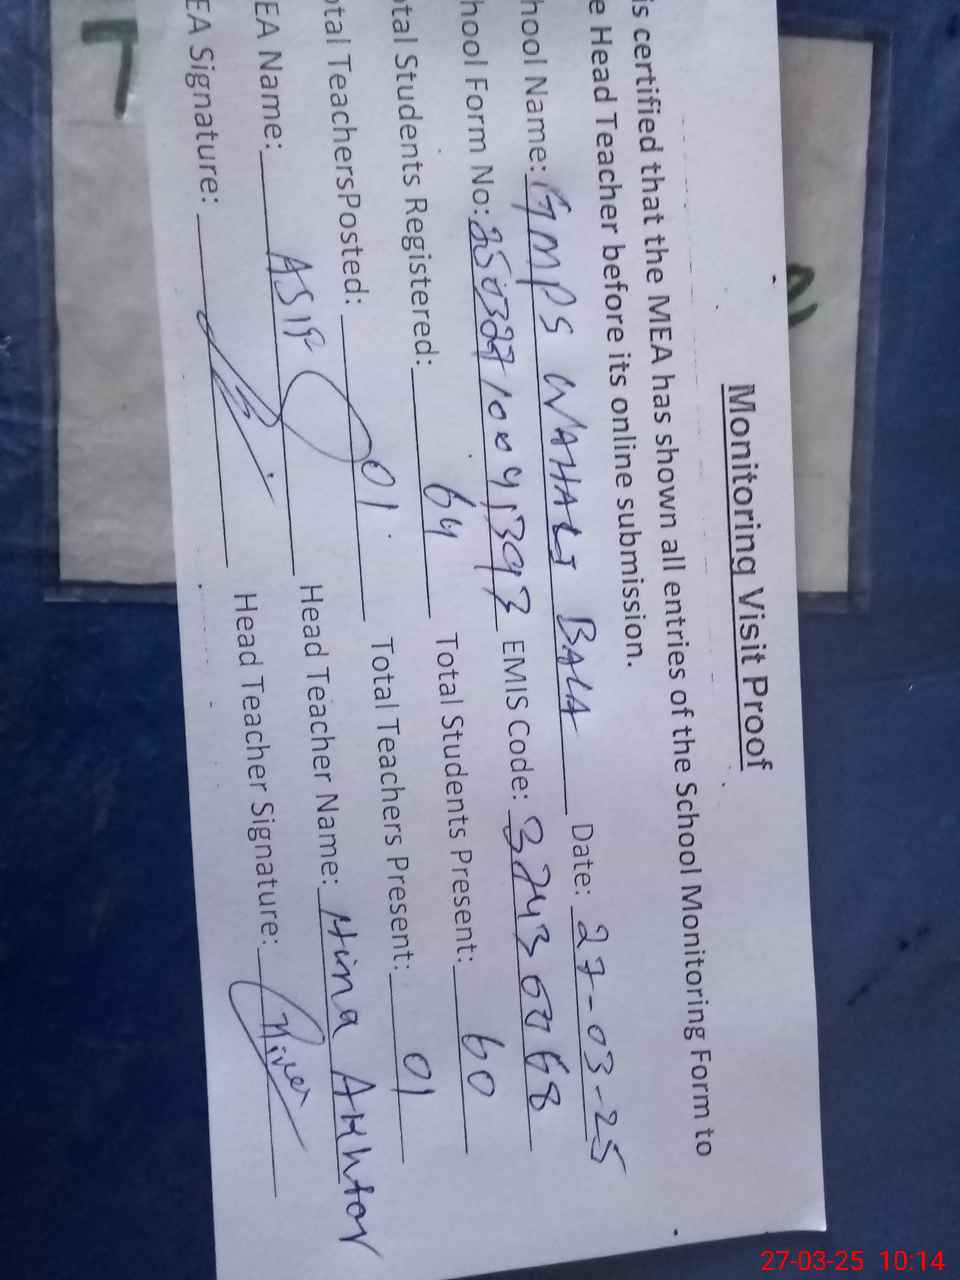 Monitoring Visit Proof
is certified that the MEA has shown all entries of the School Monitoring Form to
e Head Teacher before its online submission.
hool Name: GMPS WAHALI BALA Date: 27-03-25
hool Form No: EMIS Code: 37430068
tal Students Registered: 64 Total Students Present: 60
otal TeachersPosted: 01 Total Teachers Present: 01
EA Name: ASIF Head Teacher Name: Hina Akhtar
EA Signature: Head Teacher Signature:
27-03-25 10:14